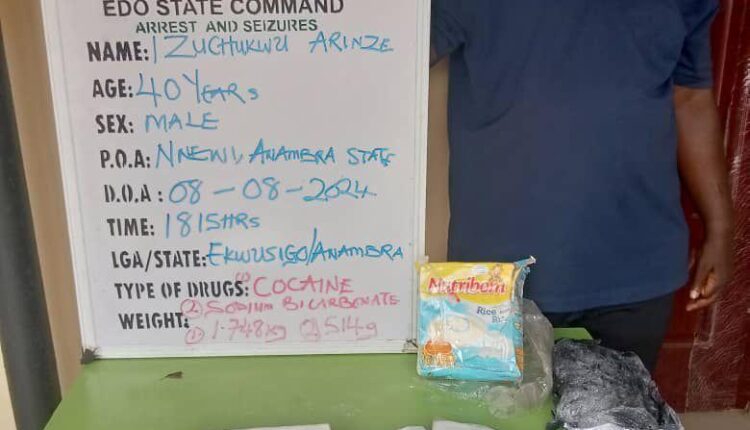 EDO STATE COMMAND
ARREST AND SEIZURES
NAME: IZUCHUKWU ARINZE
AGE: 40 YEARS
SEX: MALE
P.O.A: NNEWI, ANAMBRA STATE
D.O.A: 08-08-2024
TIME: 1815HRS
LGA/STATE: EKWUSIGO/ANAMBRA
TYPE OF DRUGS: (1) COCAINE
(2) SODIUM BICARBONATE
WEIGHT: (1) 1.748kg (2) 514g
Nutriben
Rice